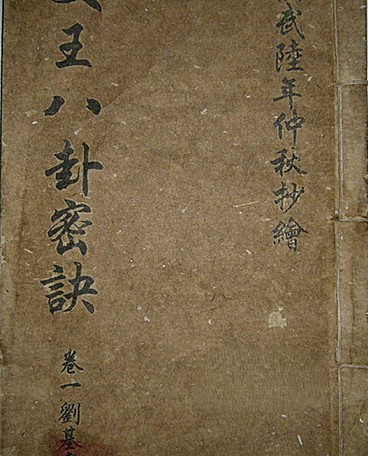 武陸年仲秋抄繪
王八卦密訣
卷一劉基